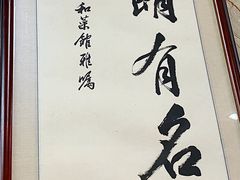 有名
和菜館雅嘱